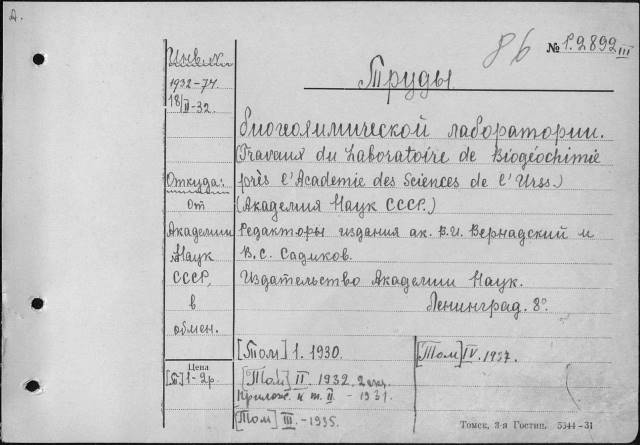 А.
86
№ 1.2892 III
Инвен.
1932-74.
18/II-32.
Труды
биогеохимической лаборатории.
(Travaux du Laboratoire de Biogéochimie
près l'Academie des Sciences de l'Urss.)
(Академия Наук СССР.)
Редакторы издания ак. В.И. Вернадский и
В.С. Садиков.
Издательство Академии Наук.
Ленинград. 8°.
Откуда:
От
Академии
Наук
СССР,
в
обмен.
Цена
[Т] 1-2р.
[Том] 1. 1930.
[Том] II. 1932. 2 экз.
Прилож. к т. II - 1931.
[Том] III. - 1935.
[Том] IV. 1937.
Томск, 3-я Гостип. 5344-31